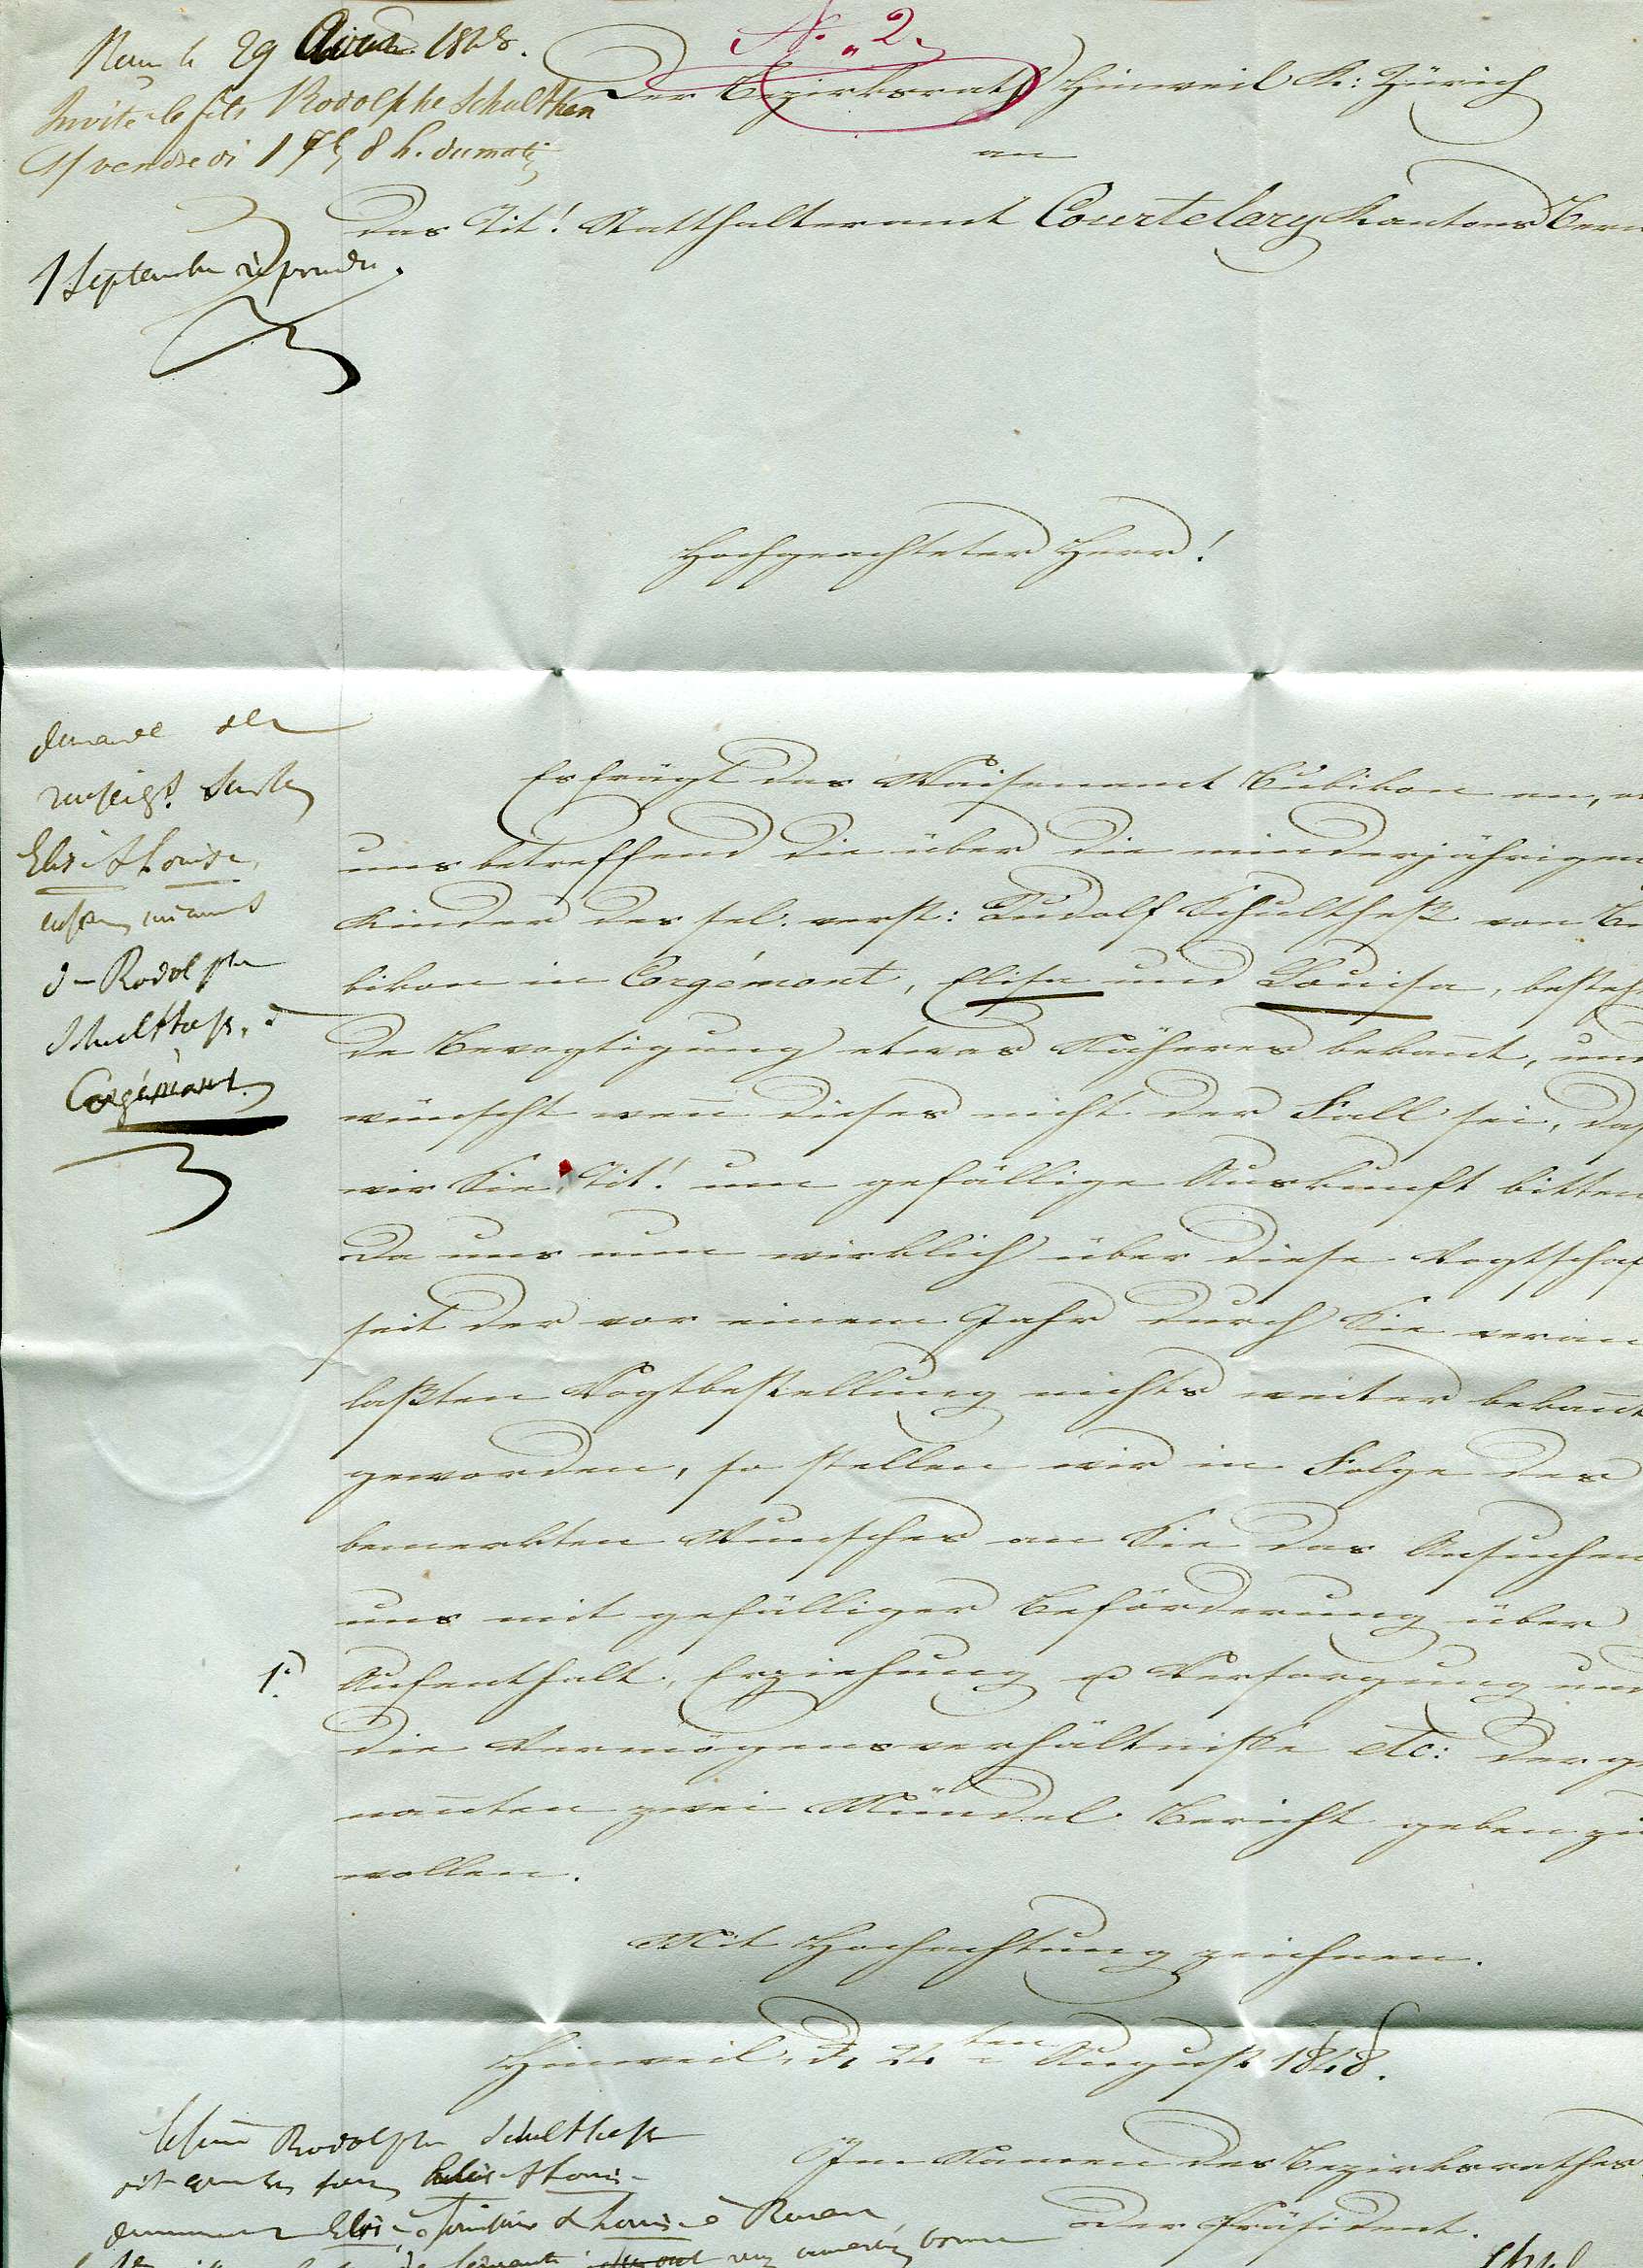 N.° 2.
29 1848.
Rodolphe Schulthess
vendredi 1 7b 8 h. du matin
1 Septembre répondu.
Der Bezirksrath Hinweil Kt: Zürich
an
das Tit! Statthalteramt Courtelary Kantons Bern
Hochgeachteter Herr!
demande des
renseigts. sur les
Elise & Louise,
enfans mineurs
de Rodolphe
Schulthess, à
Corgémont.
Es frägt das Waisenamt Bubikon an, ob
uns betreffend die über die minderjährigen
Kinder des sel. verst: Rudolf Schultheß von Bu
bikon in Corgémont, Elisa und Louisa, bestehen
de Bevogtigung etwas Näheres bekañt, und
wünscht weñ dieses nicht der Fall sei, daß
wir Sie, Tit! um gefällige Auskunft bitten
Da uns nun wirklich über diese Vogtschaft
seit der vor einem Jahr durch Sie veran
laßten Vogtbestellung nichts weiter bekañt
geworden, so stellen wir in Folge des
bemerkten Wunsches an Sie das Ansuchen
uns mit gefälliger Beförderung über
1.° Aufenthalt, Erziehung & Versorgung und
die Vermögensverhältniße etc: der ge
nañten zwei Mündel Bericht geben zu
wollen.
Mit Hochachtung zeichnen.
Hinweil, d. 24ten August 1848.
Im Namen des Bezirksrathes
der Präsident.
Rodolphe Schulthess
dit que les soeurs Elise & Louise
demeurent Elise à & Louise à Renan